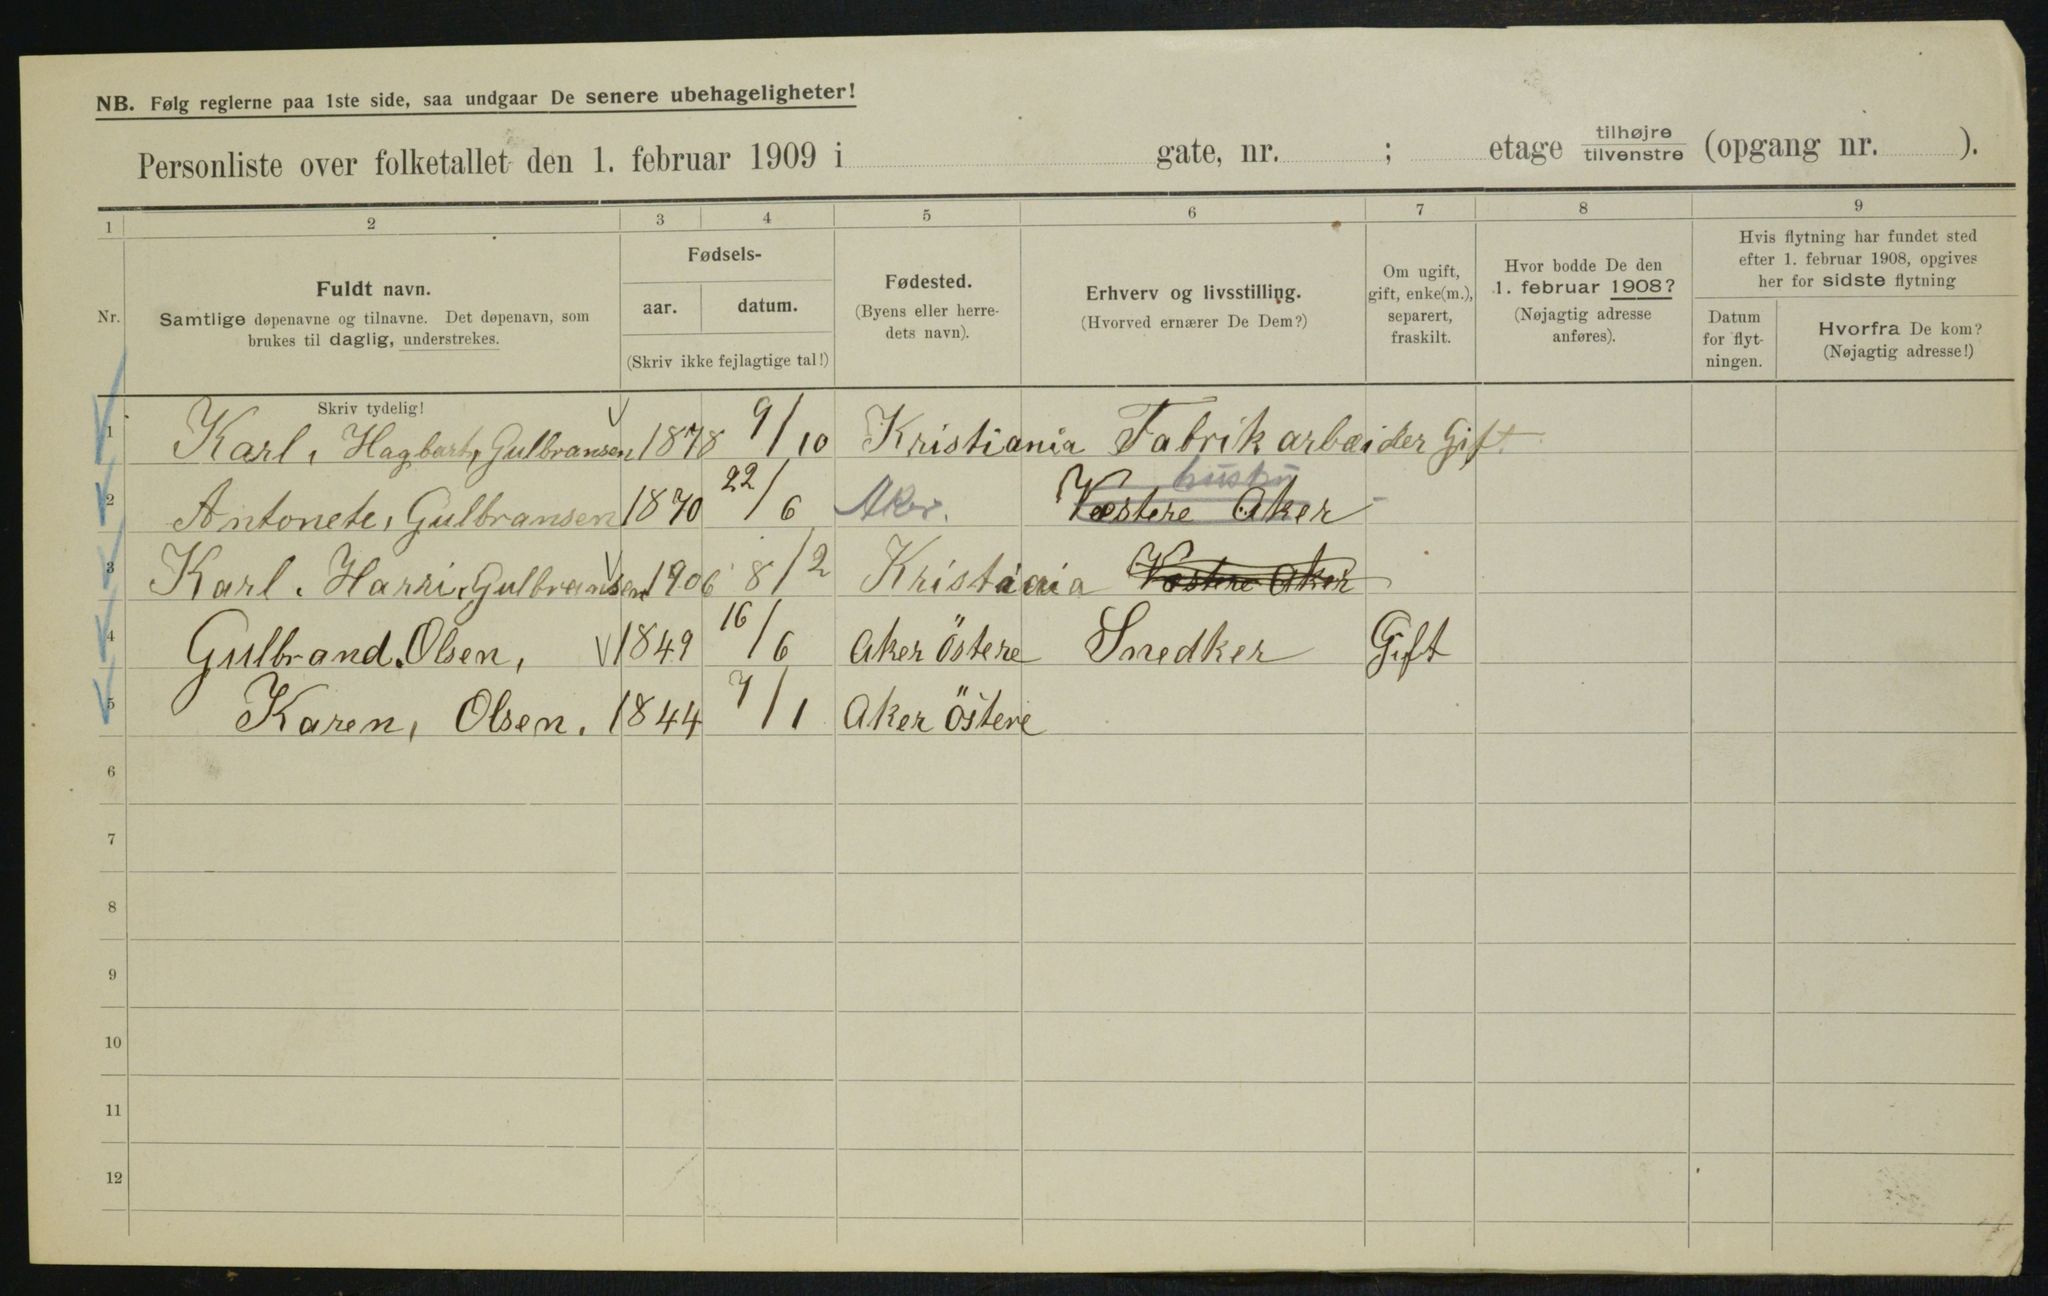 NB. Følg reglerne paa 1ste side, saa undgaar De senere ubehageligheter!
Personliste over folketallet den 1. februar 1909 i gate, nr. ; etage tilhøjre tilvenstre (opgang nr. ).
1 2 3 4 5 6 7 8 9
Nr.
Fuldt navn.
Samtlige døpenavne og tilnavne. Det døpenavn, som
brukes til daglig, understrekes.
Fødsels-
aar. datum.
(Skriv ikke fejlagtige tal!)
Fødested.
(Byens eller herre-
dets navn).
Erhverv og livsstilling.
(Hvorved ernærer De Dem?)
Om ugift,
gift, enke(m.),
separert,
fraskilt.
Hvor bodde De den
1. februar 1908?
(Nøjagtig adresse
anføres).
Hvis flytning har fundet sted
efter 1. februar 1908, opgives
her for sidste flytning
Datum
for flyt-
ningen.
Hvorfra De kom?
(Nøjagtig adresse!)
Skriv tydelig!
1 Karl, Hagbart, Gulbransen 1878 9/10 Kristiania Fabrik arbeider Gift
hustru
2 Antonete, Gulbransen 1870 22/6 Aker. Væstere Aker
3 Karl. Harri, Gulbransen 1906 8/2 Kristiania Væstere Aker
4 Gulbrand. Olsen, 1849 16/6 Aker Östere Snedker Gift
5 Karen, Olsen. 1844 7/1 Aker Östere
6
7
8
9
10
11
12